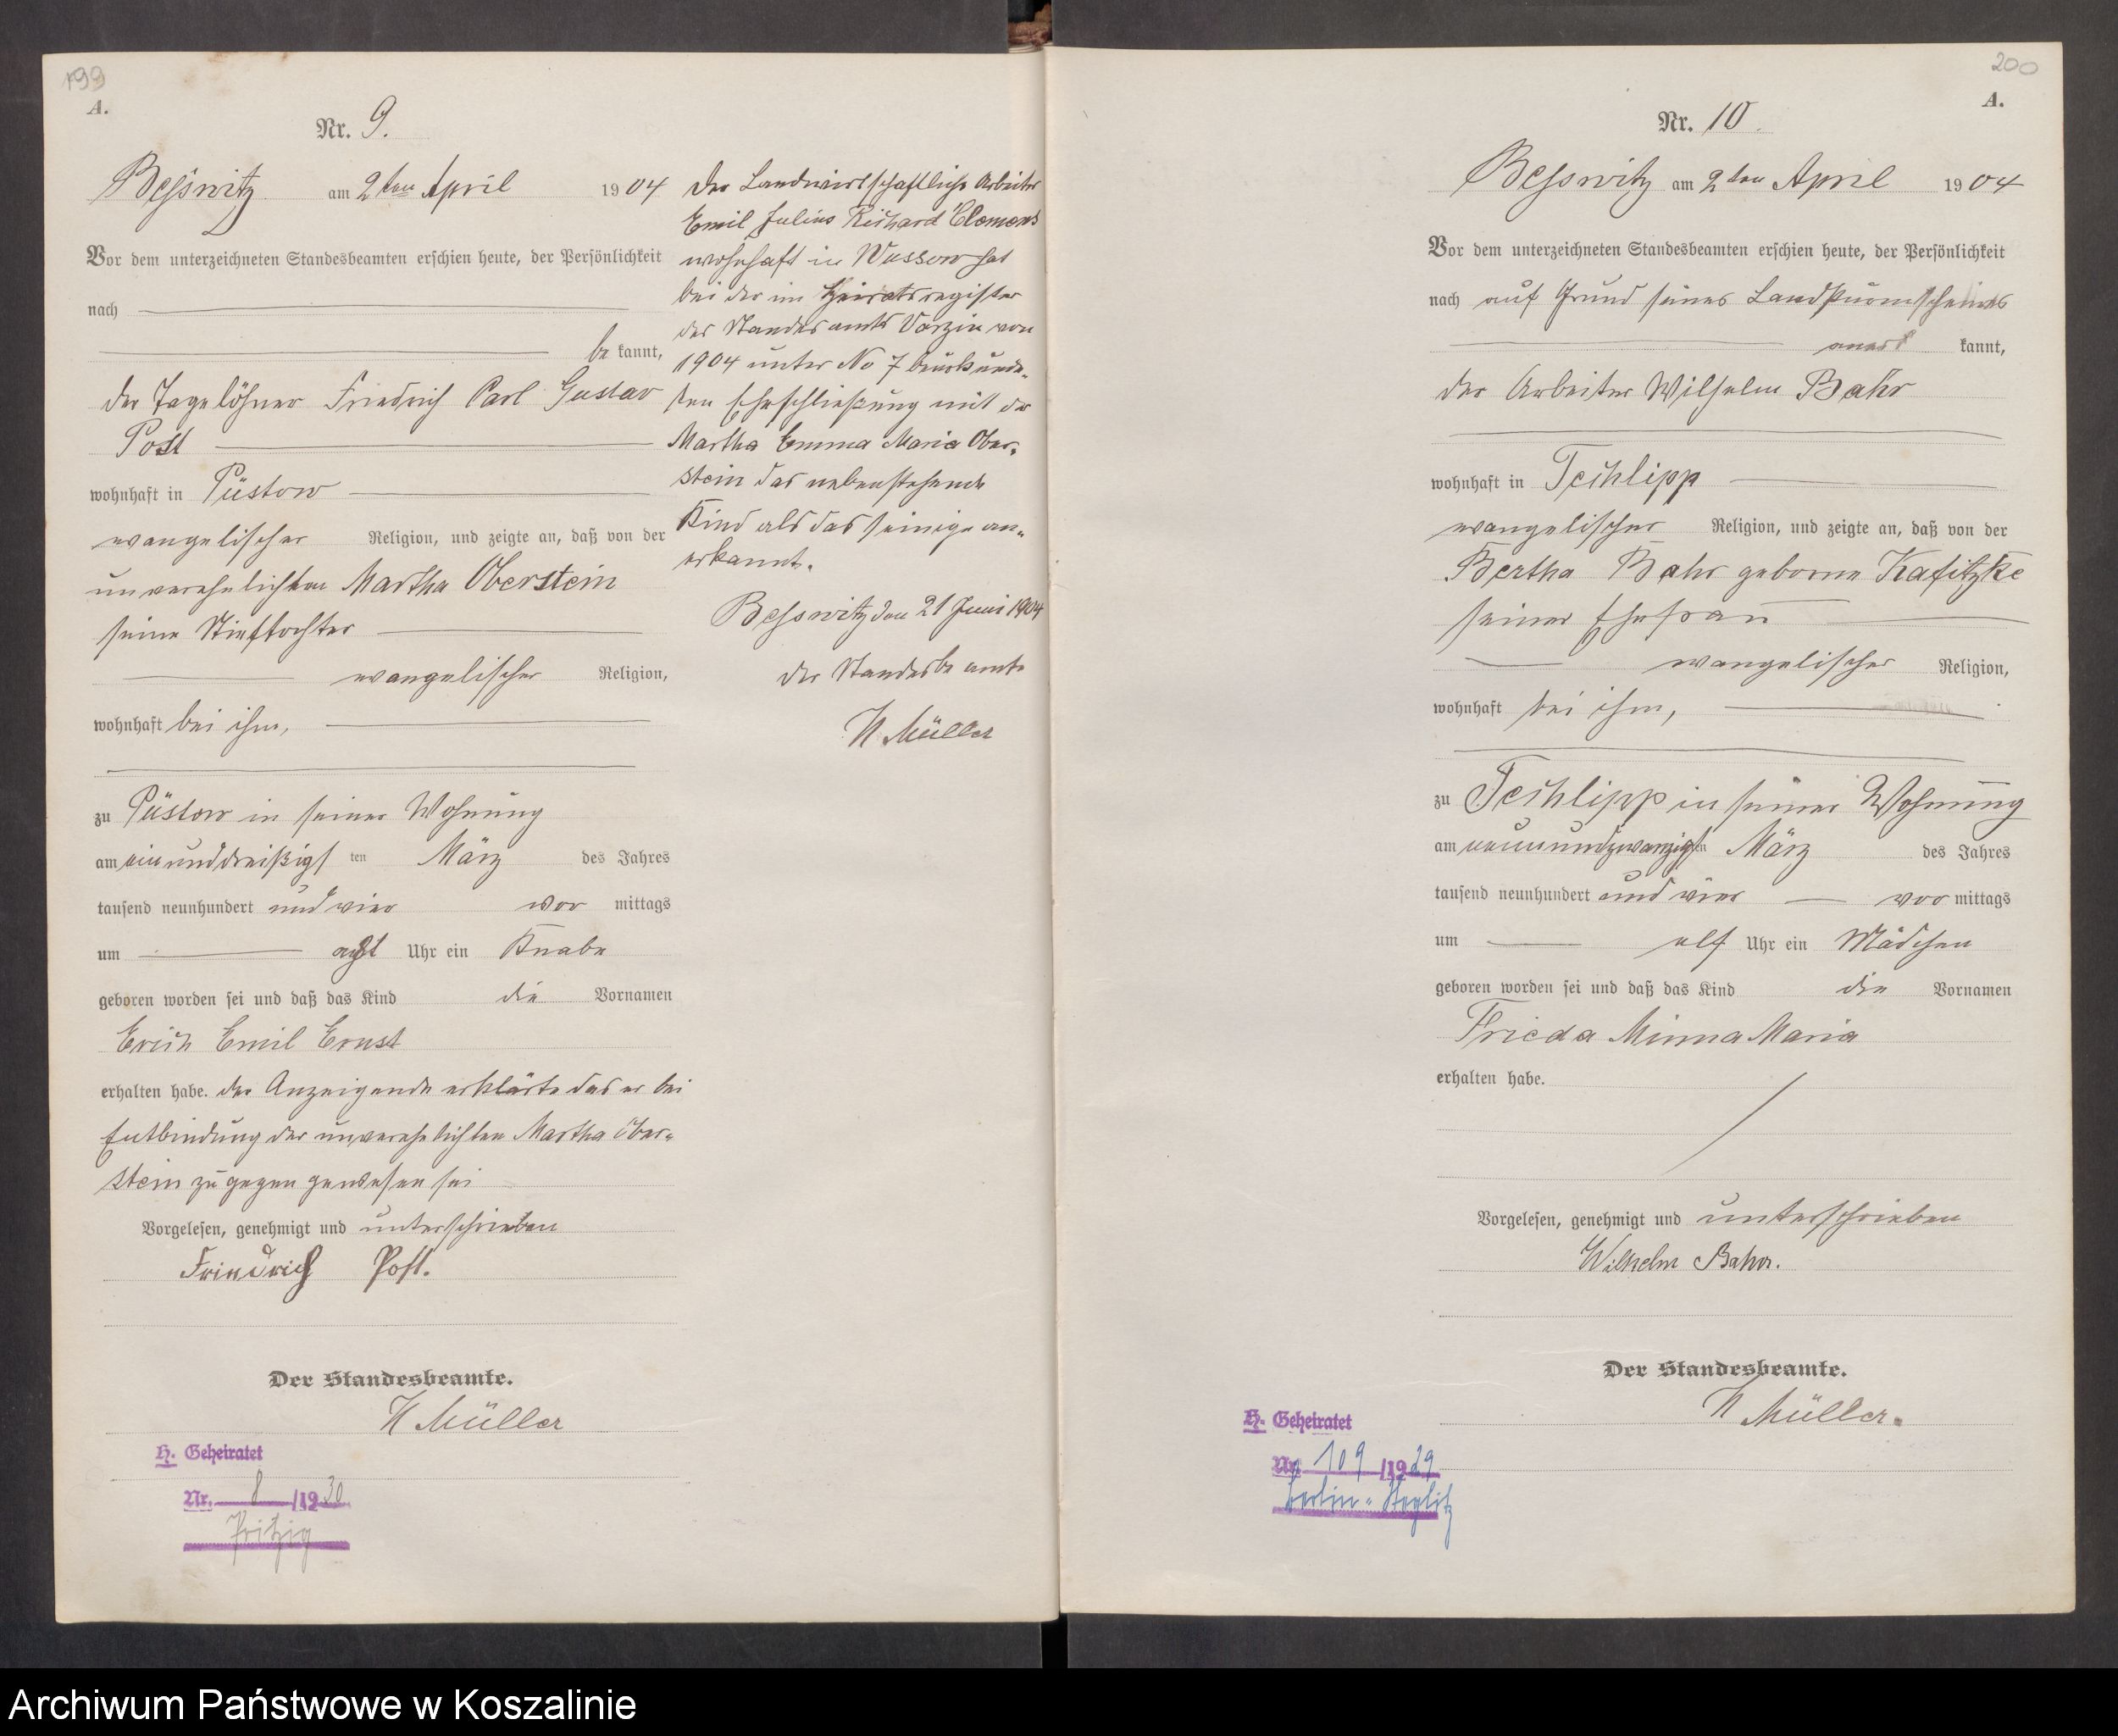 199
A.
Nr. 9.
Besswitz am 2ten April 1904
Vor dem unterzeichneten Standesbeamten erschien heute, der Persönlichkeit
nach
be kannt,
der Tagelöhner Friedrich Carl Gustav
Post
wohnhaft in Püstow
evangelischer Religion, und zeigte an, daß von der
unverehelichten Martha Oberstein
seine Stieftochter
evangelischer Religion,
wohnhaft bei ihm,
zu Püstow in seiner Wohnung
am einunddreißigsten März des Jahres
tausend neunhundert und vier vor mittags
um acht Uhr ein Knabe
geboren worden sei und daß das Kind die Vornamen
Erich Emil Ernst
erhalten habe. der Anzeigende erklärte das er bei
Entbindung der unverehelichten Martha Ober-
stein zu gegen gewesen sei
Vorgelesen, genehmigt und unterschrieben
Friedrich Post.
Der Standesbeamte.
H Müller
H. Geheiratet
Nr. 8 /1930
Pritzig
Der Landwirtschaftliche Arbeiter
Emil Julius Richard Clemens
wohnhaft in Wussow hat
bei der im Heiratsregister
des Standesamts Varzin von
1904 unter No 7 beurkunde-
ten Eheschließung mit der
Martha Emma Maria Ober-
stein das nebenstehende
Kind als das seinige an-
erkannt.
Besswitz den 21 Juni 1904
der Standesbeamte
H Müller
200
A.
Nr. 10.
Besswitz am 2ten April 1904
Vor dem unterzeichneten Standesbeamten erschien heute, der Persönlichkeit
nach auf Grund seines Landsturmscheines
aner kannt,
der Arbeiter Wilhelm Bahr
wohnhaft in Techlipp
evangelischer Religion, und zeigte an, daß von der
Bertha Bahr geborne Kafitzke
seiner Ehefrau
evangelischer Religion,
wohnhaft bei ihm,
zu Techlipp in seiner Wohnung
am neunundzwanzigsten März des Jahres
tausend neunhundert und vier vor mittags
um elf Uhr ein Mädchen
geboren worden sei und daß das Kind die Vornamen
Frieda Minna Maria
erhalten habe.
Vorgelesen, genehmigt und unterschrieben
Wilhelm Bahr.
Der Standesbeamte.
H Müller.
H. Geheiratet
Nr. 109 /1929
Berlin-Steglitz
Archiwum Państwowe w Koszalinie